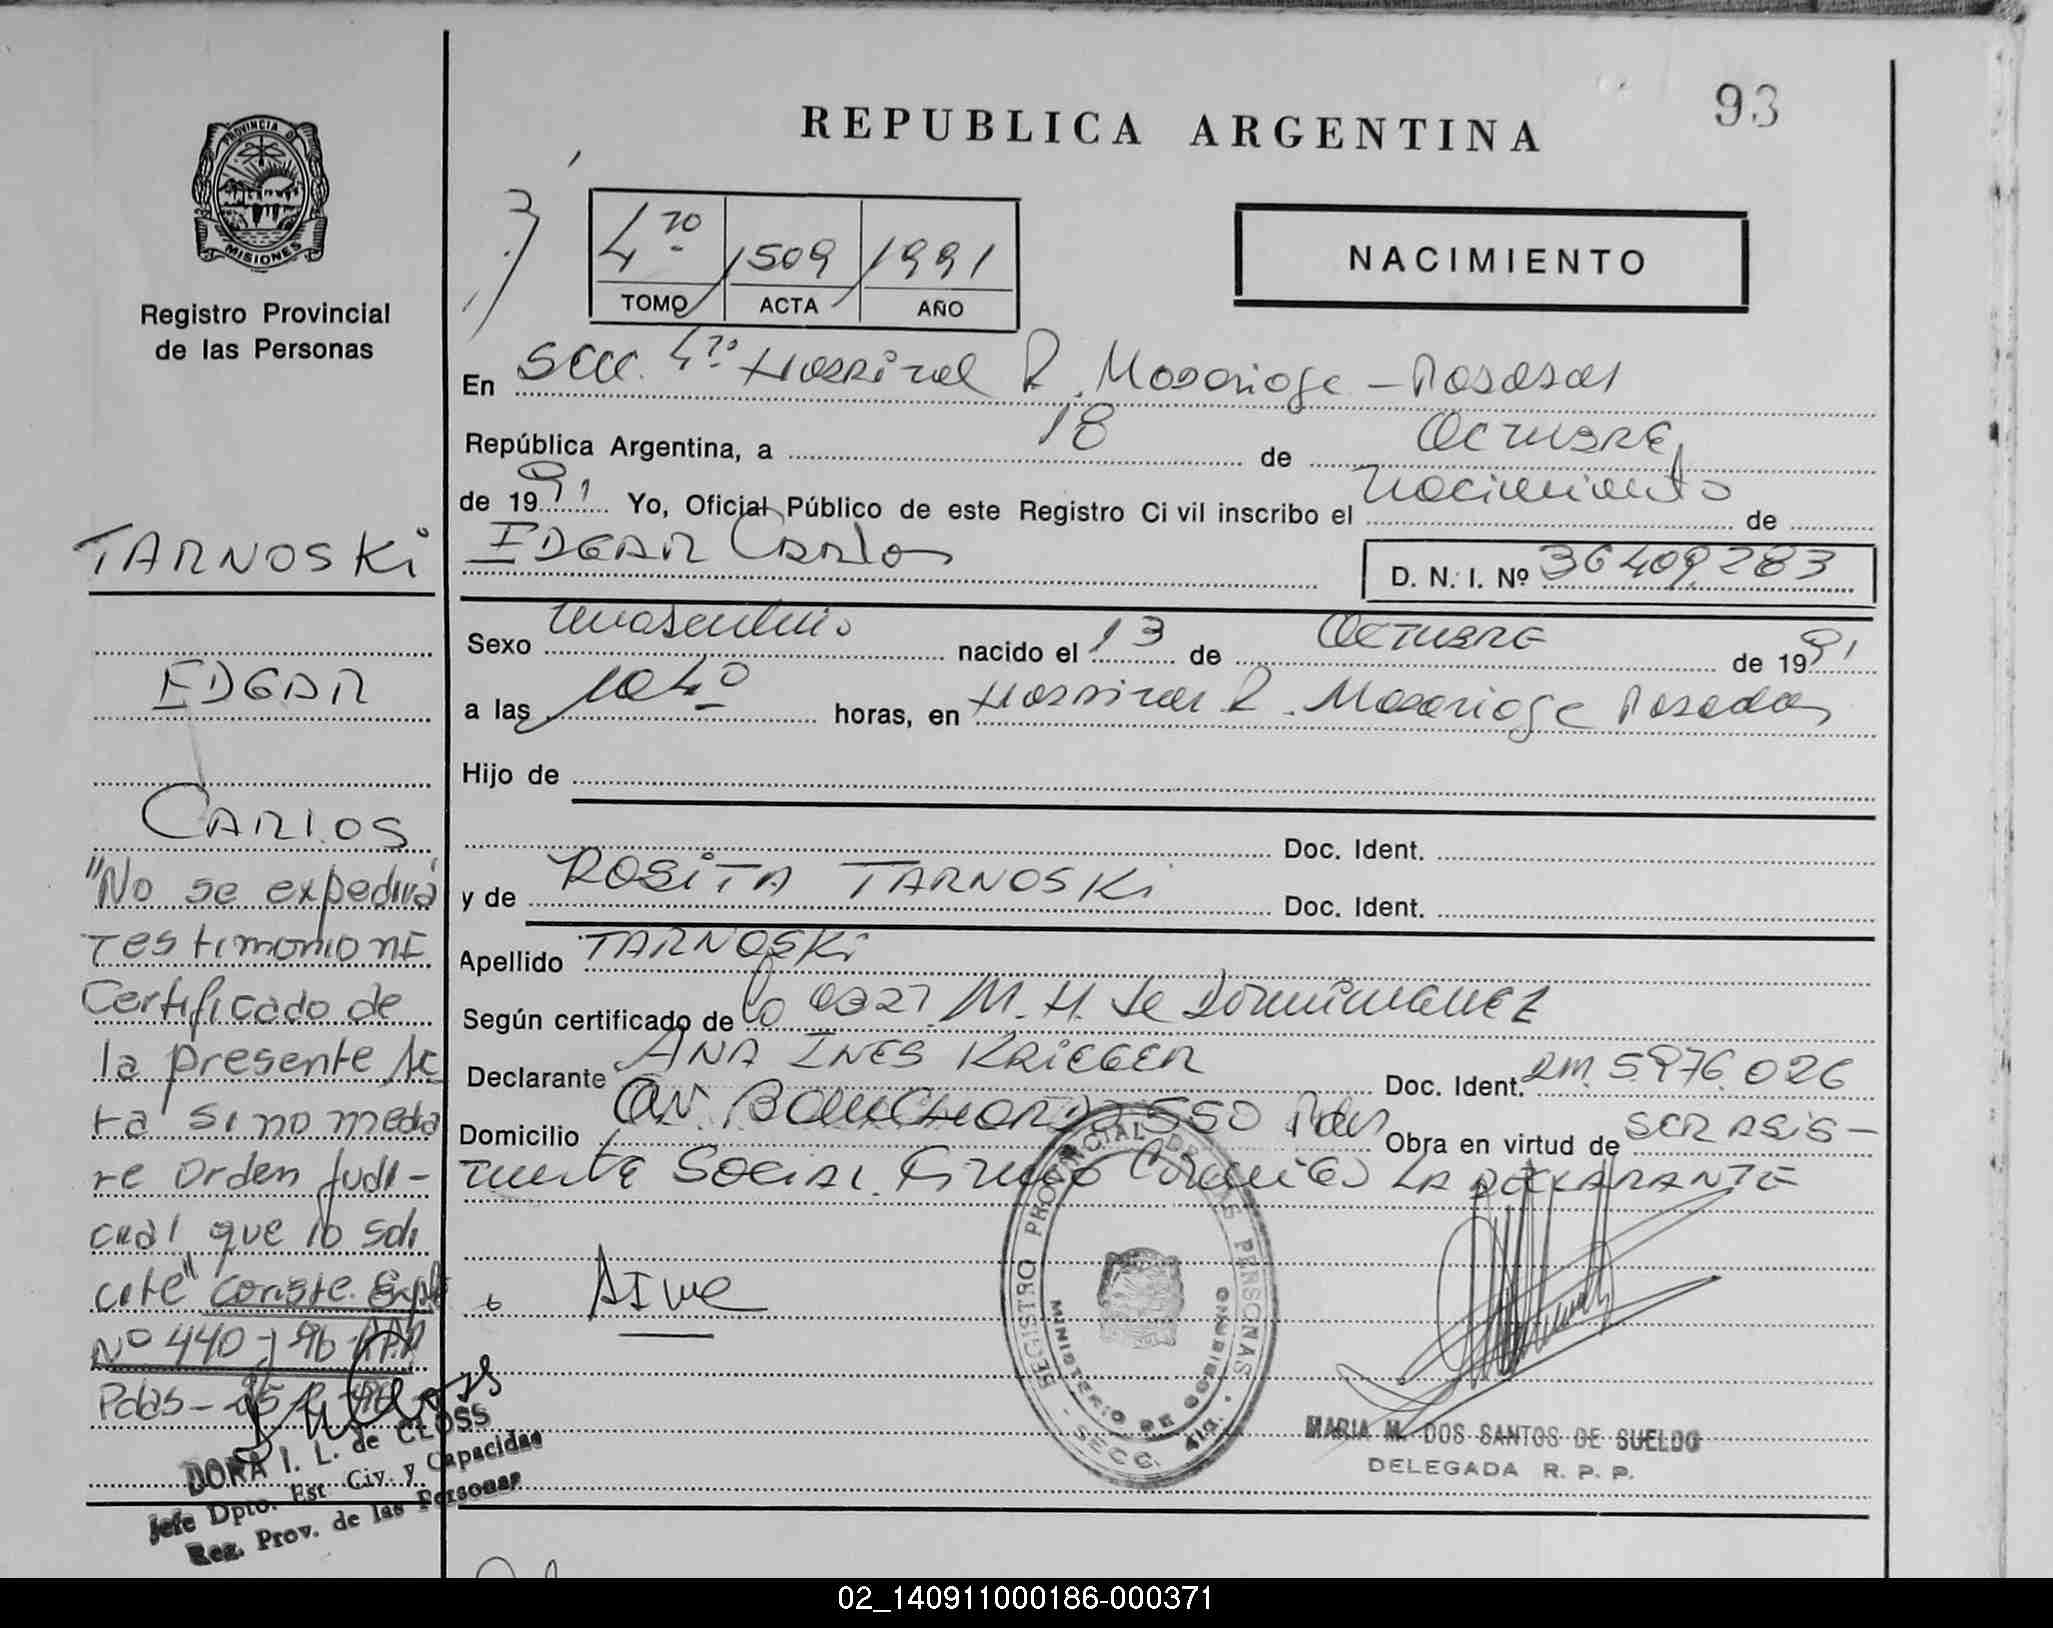 93
REPUBLICA ARGENTINA
PROVINCIA DE
MISIONES
Registro Provincial
de las Personas
4to 1509 1991
TOMO ACTA AÑO
NACIMIENTO
En Secc. 4to Hospital R. Madariaga - Posadas
República Argentina, a 18 de Octubre
de 1991 Yo, Oficial Público de este Registro Civil inscribo el Nacimiento de
EDGAR Carlos
D. N. I. Nº 36409283
Sexo masculino nacido el 13 de OCTUBRE de 1991
a las 1040 horas, en Hospital R. Madariaga Posadas
Hijo de
Doc. Ident.
y de ROSITA TARNOSKi Doc. Ident.
Apellido TARNOSKi
Según certificado de lo 0327 M. H. de DOMINGUEZ
Declarante ANA INES KRIEGER Doc. Ident. 5976.026
Domicilio AV. BOUCHARD 550 Pdas Obra en virtud de SER ASIS-
TENTE SOCIAL. LA DECLARANTE
REGISTRO PROVINCIAL DE LAS PERSONAS
MINISTERIO DE GOBIERNO
SECC. 4ta.
MARIA M. DOS SANTOS DE SUELDO
DELEGADA R. P. P.
TARNOSKi
EDGAR
CARLOS
"No se expedirá
Testimonio ni
Certificado de
la presente Ac
ta sino media
te Orden Judi-
cial que lo soli
cite" Conste. Expte
Nº 440-J-96
Pdas-
DORA I. L. de CLOSS
Jefe Dpto. Est. Civ. y Capacidad
Reg. Prov. de las Personas
02_140911000186-000371